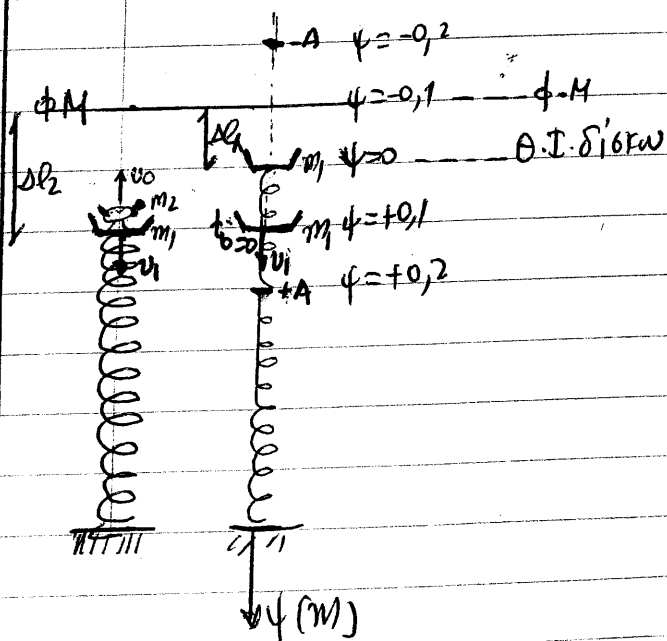 -A ψ=-0,2
ΦΜ ψ=-0,1 Φ.Μ
Δℓ1 m1 ψ=0 Θ.Ι.δίσκου
Δℓ2 υ0
m2
m1 t0=0 m1 ψ=+0,1
υ1 υ1
+A ψ=+0,2
ψ(m)